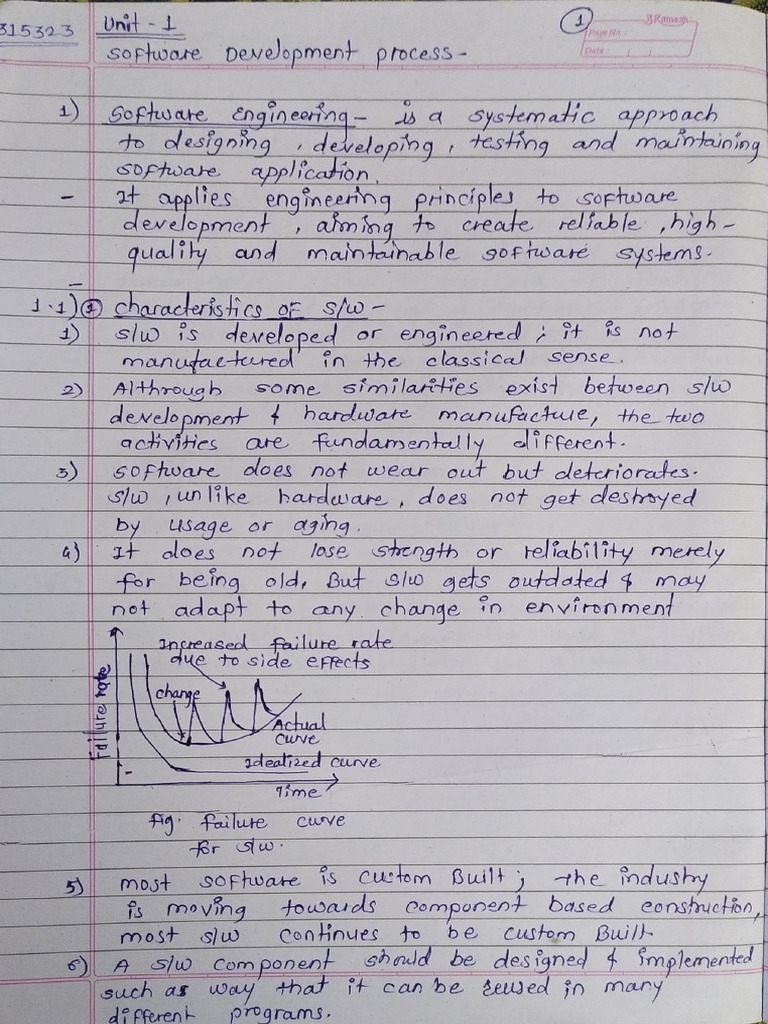 315323
Unit - 1
1
JBRamesh
Page No:
Date: / /
Software Development process -
1) Software Engineering - is a systematic approach
to designing, developing, testing and maintaining
software application.
- It applies engineering principles to software
development, aiming to create reliable, high-
quality and maintainable software systems.
-
1.1) 1 characteristics of s/w -
1) s/w is developed or engineered ; it is not
manufactured in the classical sense.
2) Althrough some similarities exist between s/w
development & hardware manufacture, the two
activities are fundamentally different.
3) software does not wear out but deteriorates.
s/w, unlike hardware, does not get destroyed
by usage or aging.
4) It does not lose strength or reliability merely
for being old, But s/w gets outdated & may
not adapt to any change in environment
Increased failure rate
due to side effects
change
Failure rate
Actual
curve
Idealized curve
Time
fig. failure curve
for s/w.
5) most software is custom Built; the industry
is moving towards component based construction,
most s/w continues to be custom Built
6) A s/w component should be designed & implemented
such as way that it can be reused in many
different programs.